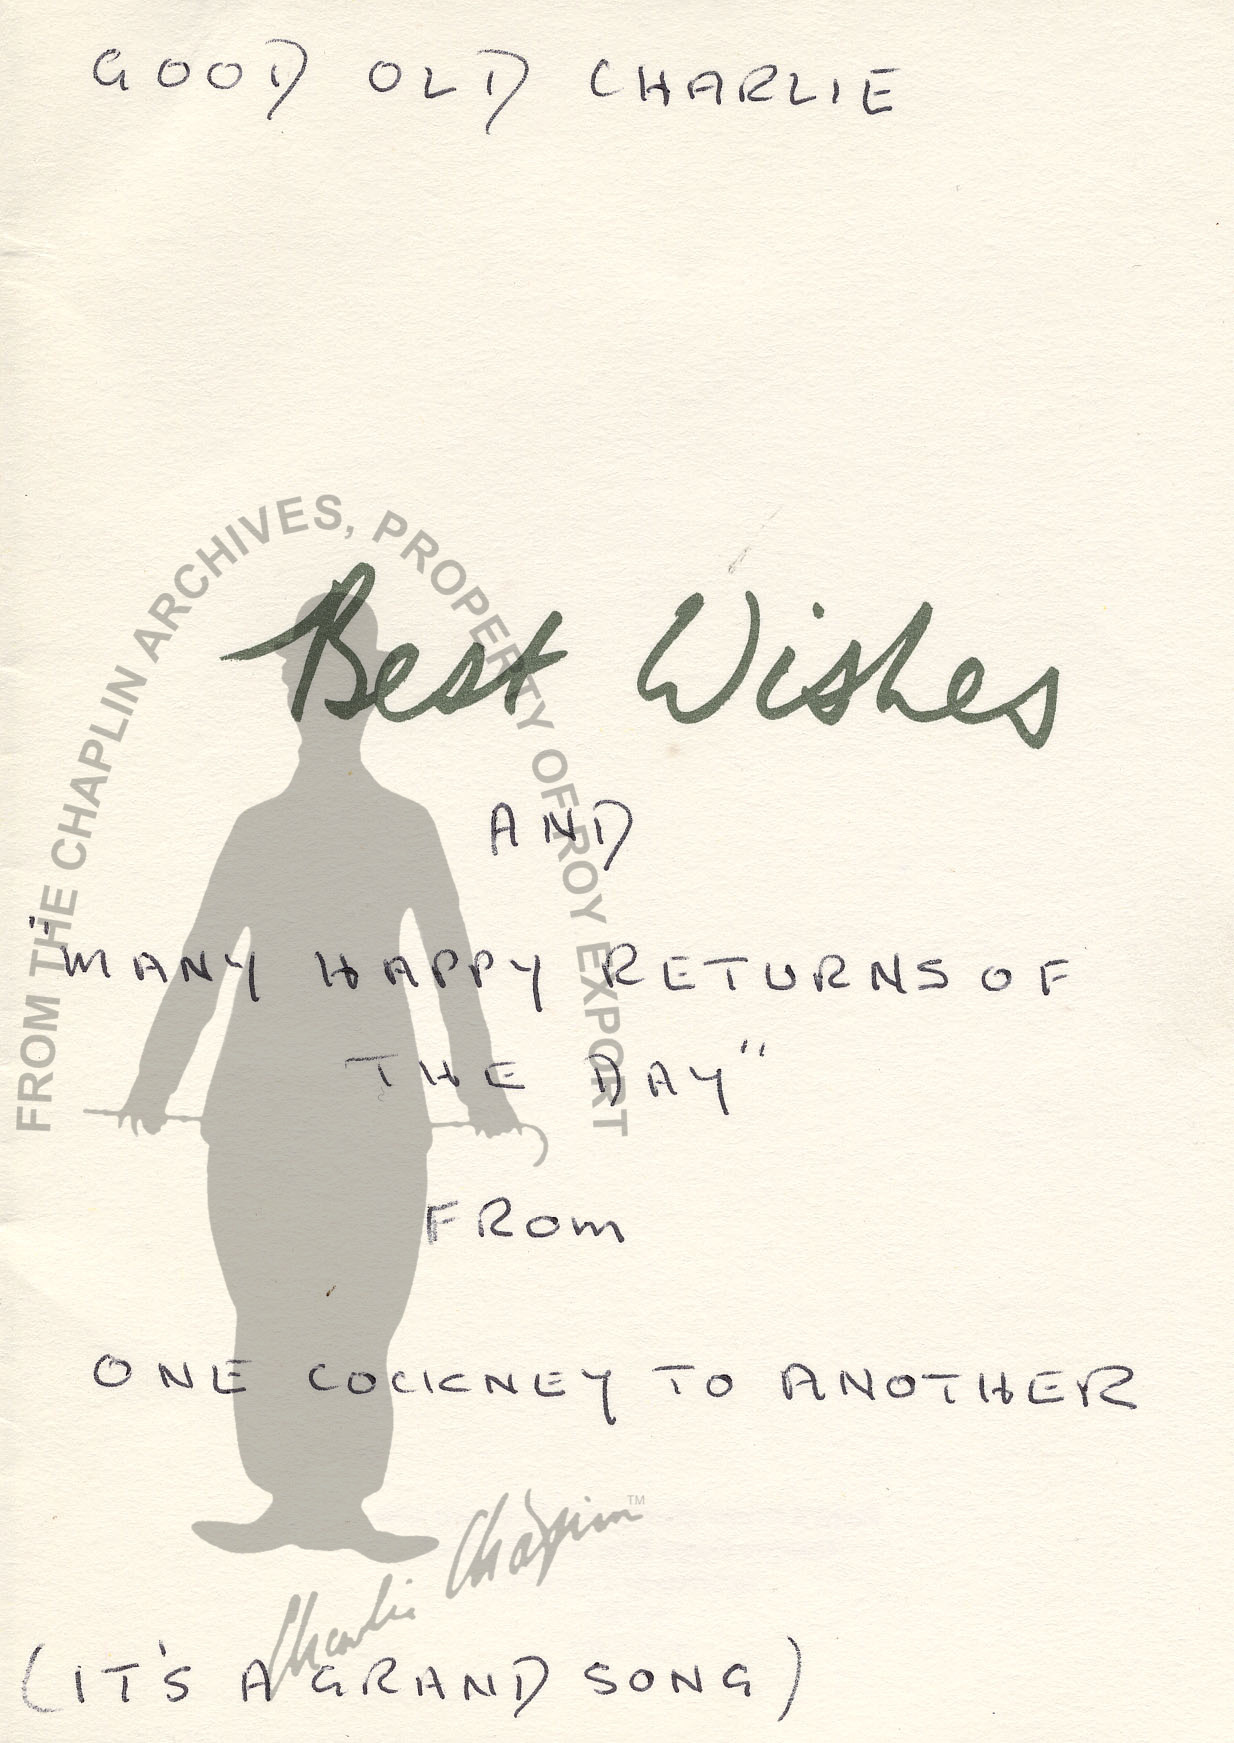 GOOD OLD CHARLIE
FROM THE CHAPLIN ARCHIVES, PROPERTY OF ROY EXPORT
Best Wishes
AND
"MANY HAPPY RETURNS OF
THE DAY"
FROM
ONE COCKNEY TO ANOTHER
Charlie Chaplin™
(IT'S A GRAND SONG)